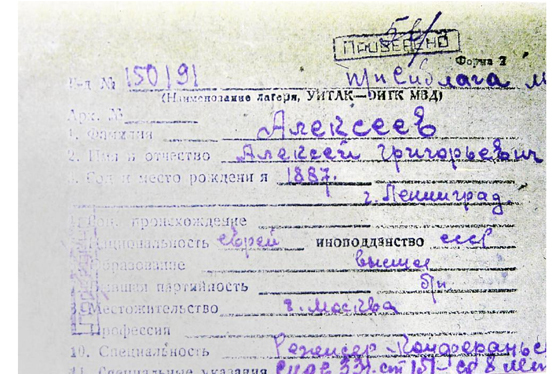 ПРОВЕРЕНО
Форма 2
№ 150/91 Сиблага М
(Наименование лагеря, УИТЛК—ОИТК МВД)
Арх. №
1. Фамилия Алексеев
2. Имя и отчество Алексей Григорьевич
Год и место рождения 1887.
г. Ленинград
происхождение
национальность еврей иноподданство ссср
Образование высшее
партийность б/п
Местожительство г. Москва
Профессия
10. Специальность Режиссер
11. Специальные указания ст 8 лет